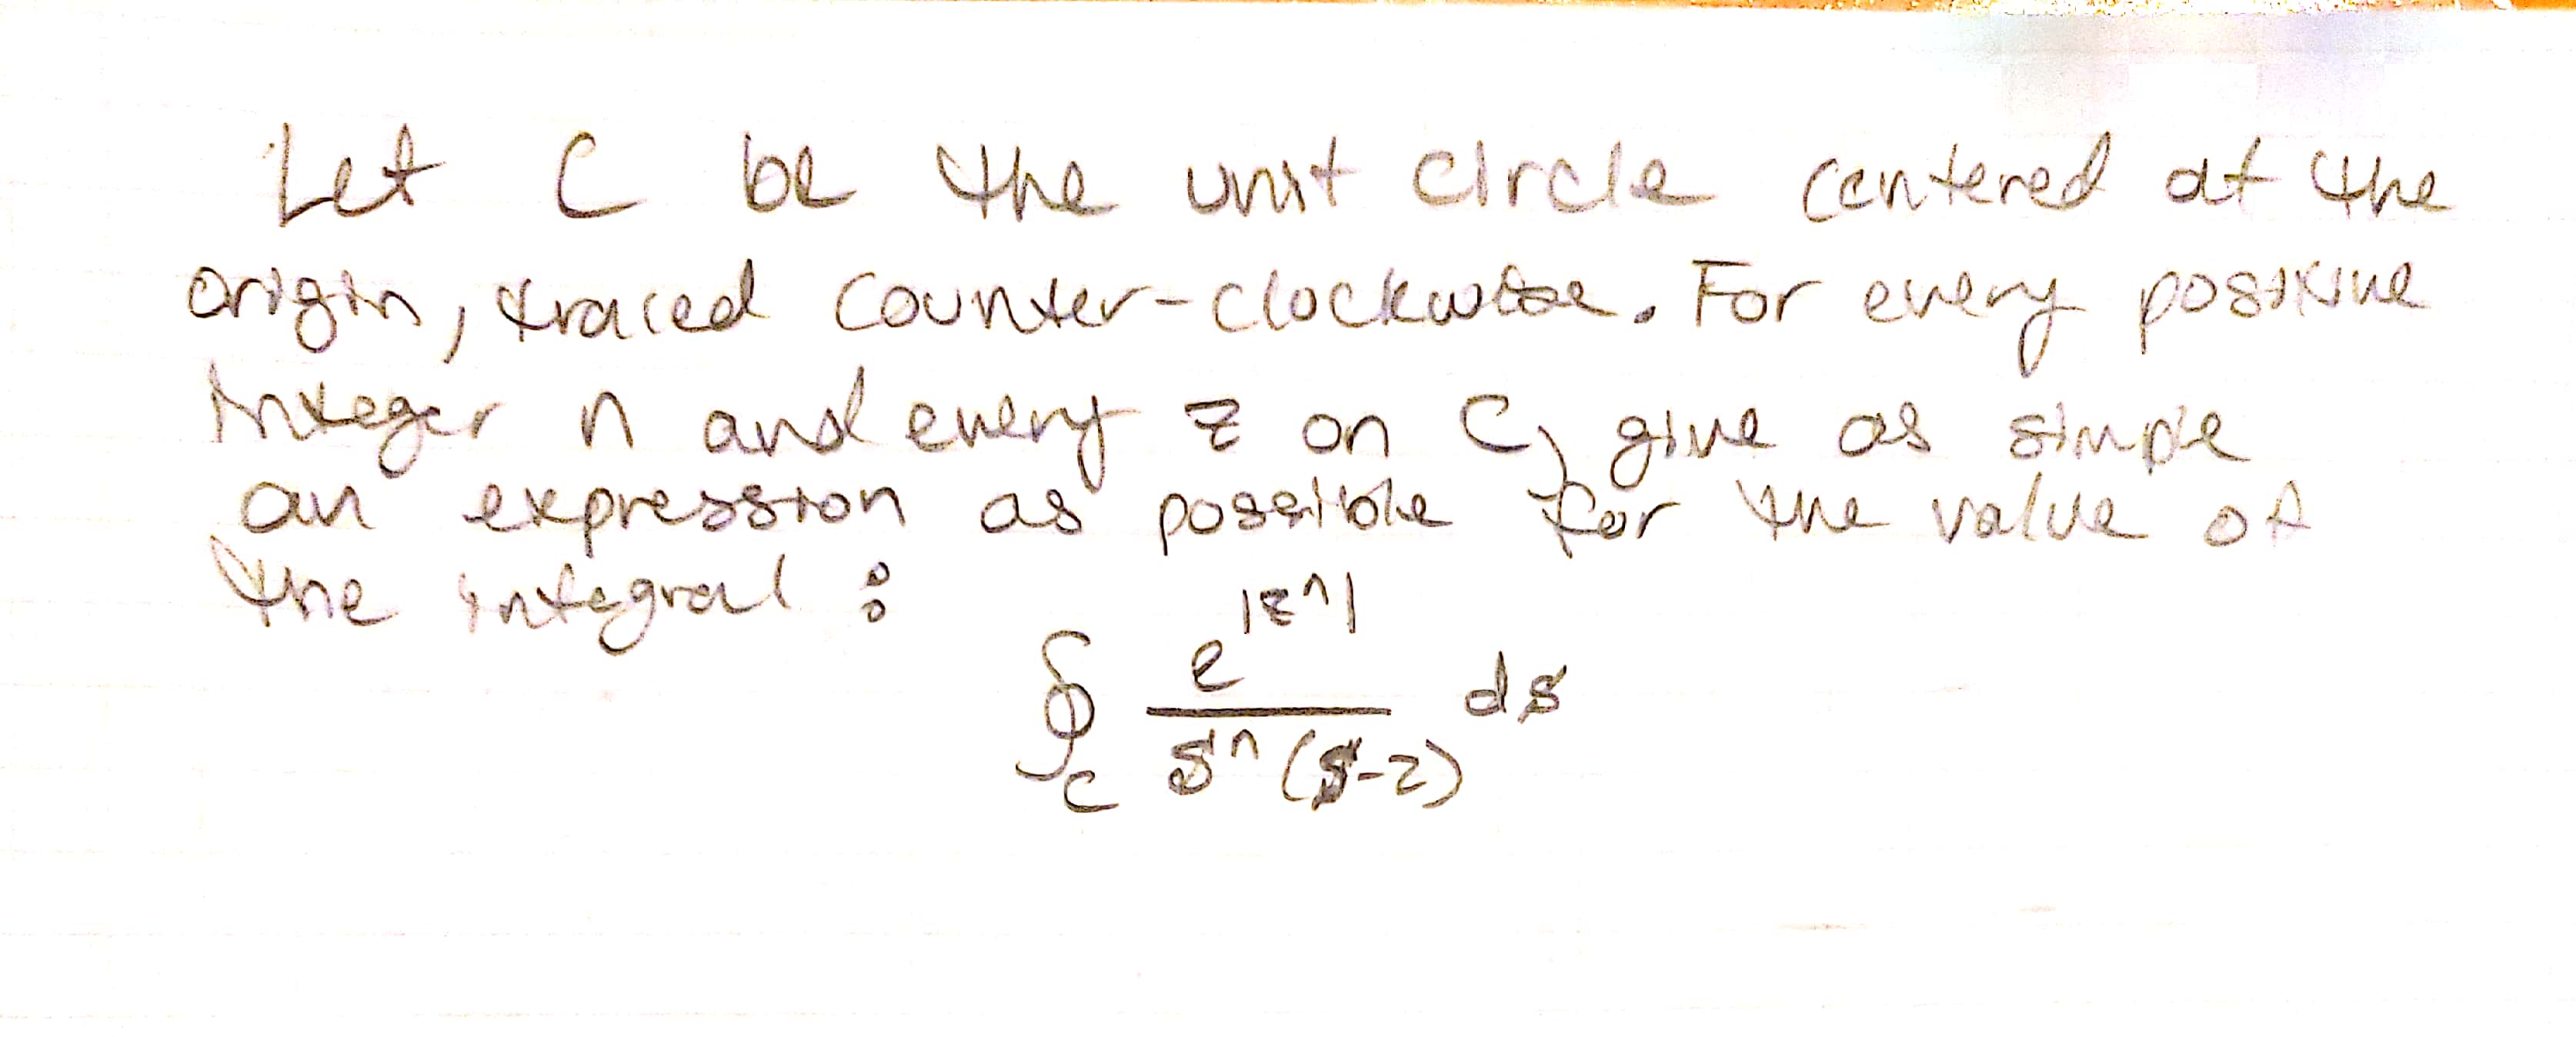 Let C be the unit circle centered at the
origin, traced counter-clockwise. For every positive
integer n and every z on C, give as simple
an expression as possible for the value of
the integral:
∮_C e^{|z^n|} / (s^n (s-2)) ds